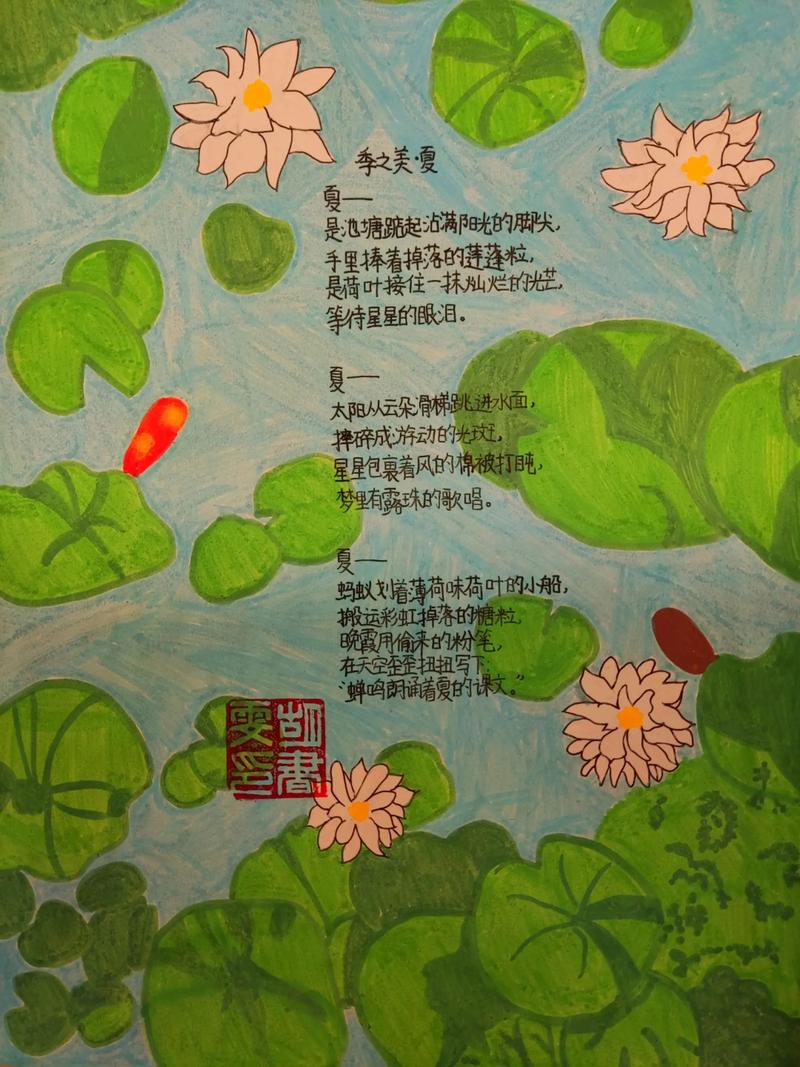 季之美·夏
夏——
是池塘踮起沾满阳光的脚尖，
手里捧着掉落的莲蓬粒，
是荷叶接住一抹灿烂的光芒，
等待星星的眼泪。
夏——
太阳从云朵滑梯跳进水面，
摔碎成游动的光斑，
星星包裹着风的棉被打盹，
梦里有露珠的歌唱。
夏——
蚂蚁划着薄荷味荷叶的小船，
搬运彩虹掉落的糖粒，
晚霞用偷来的粉笔，
在天空歪歪扭扭写下：
“蝉鸣朗诵着夏的课文。”
胡书雯印